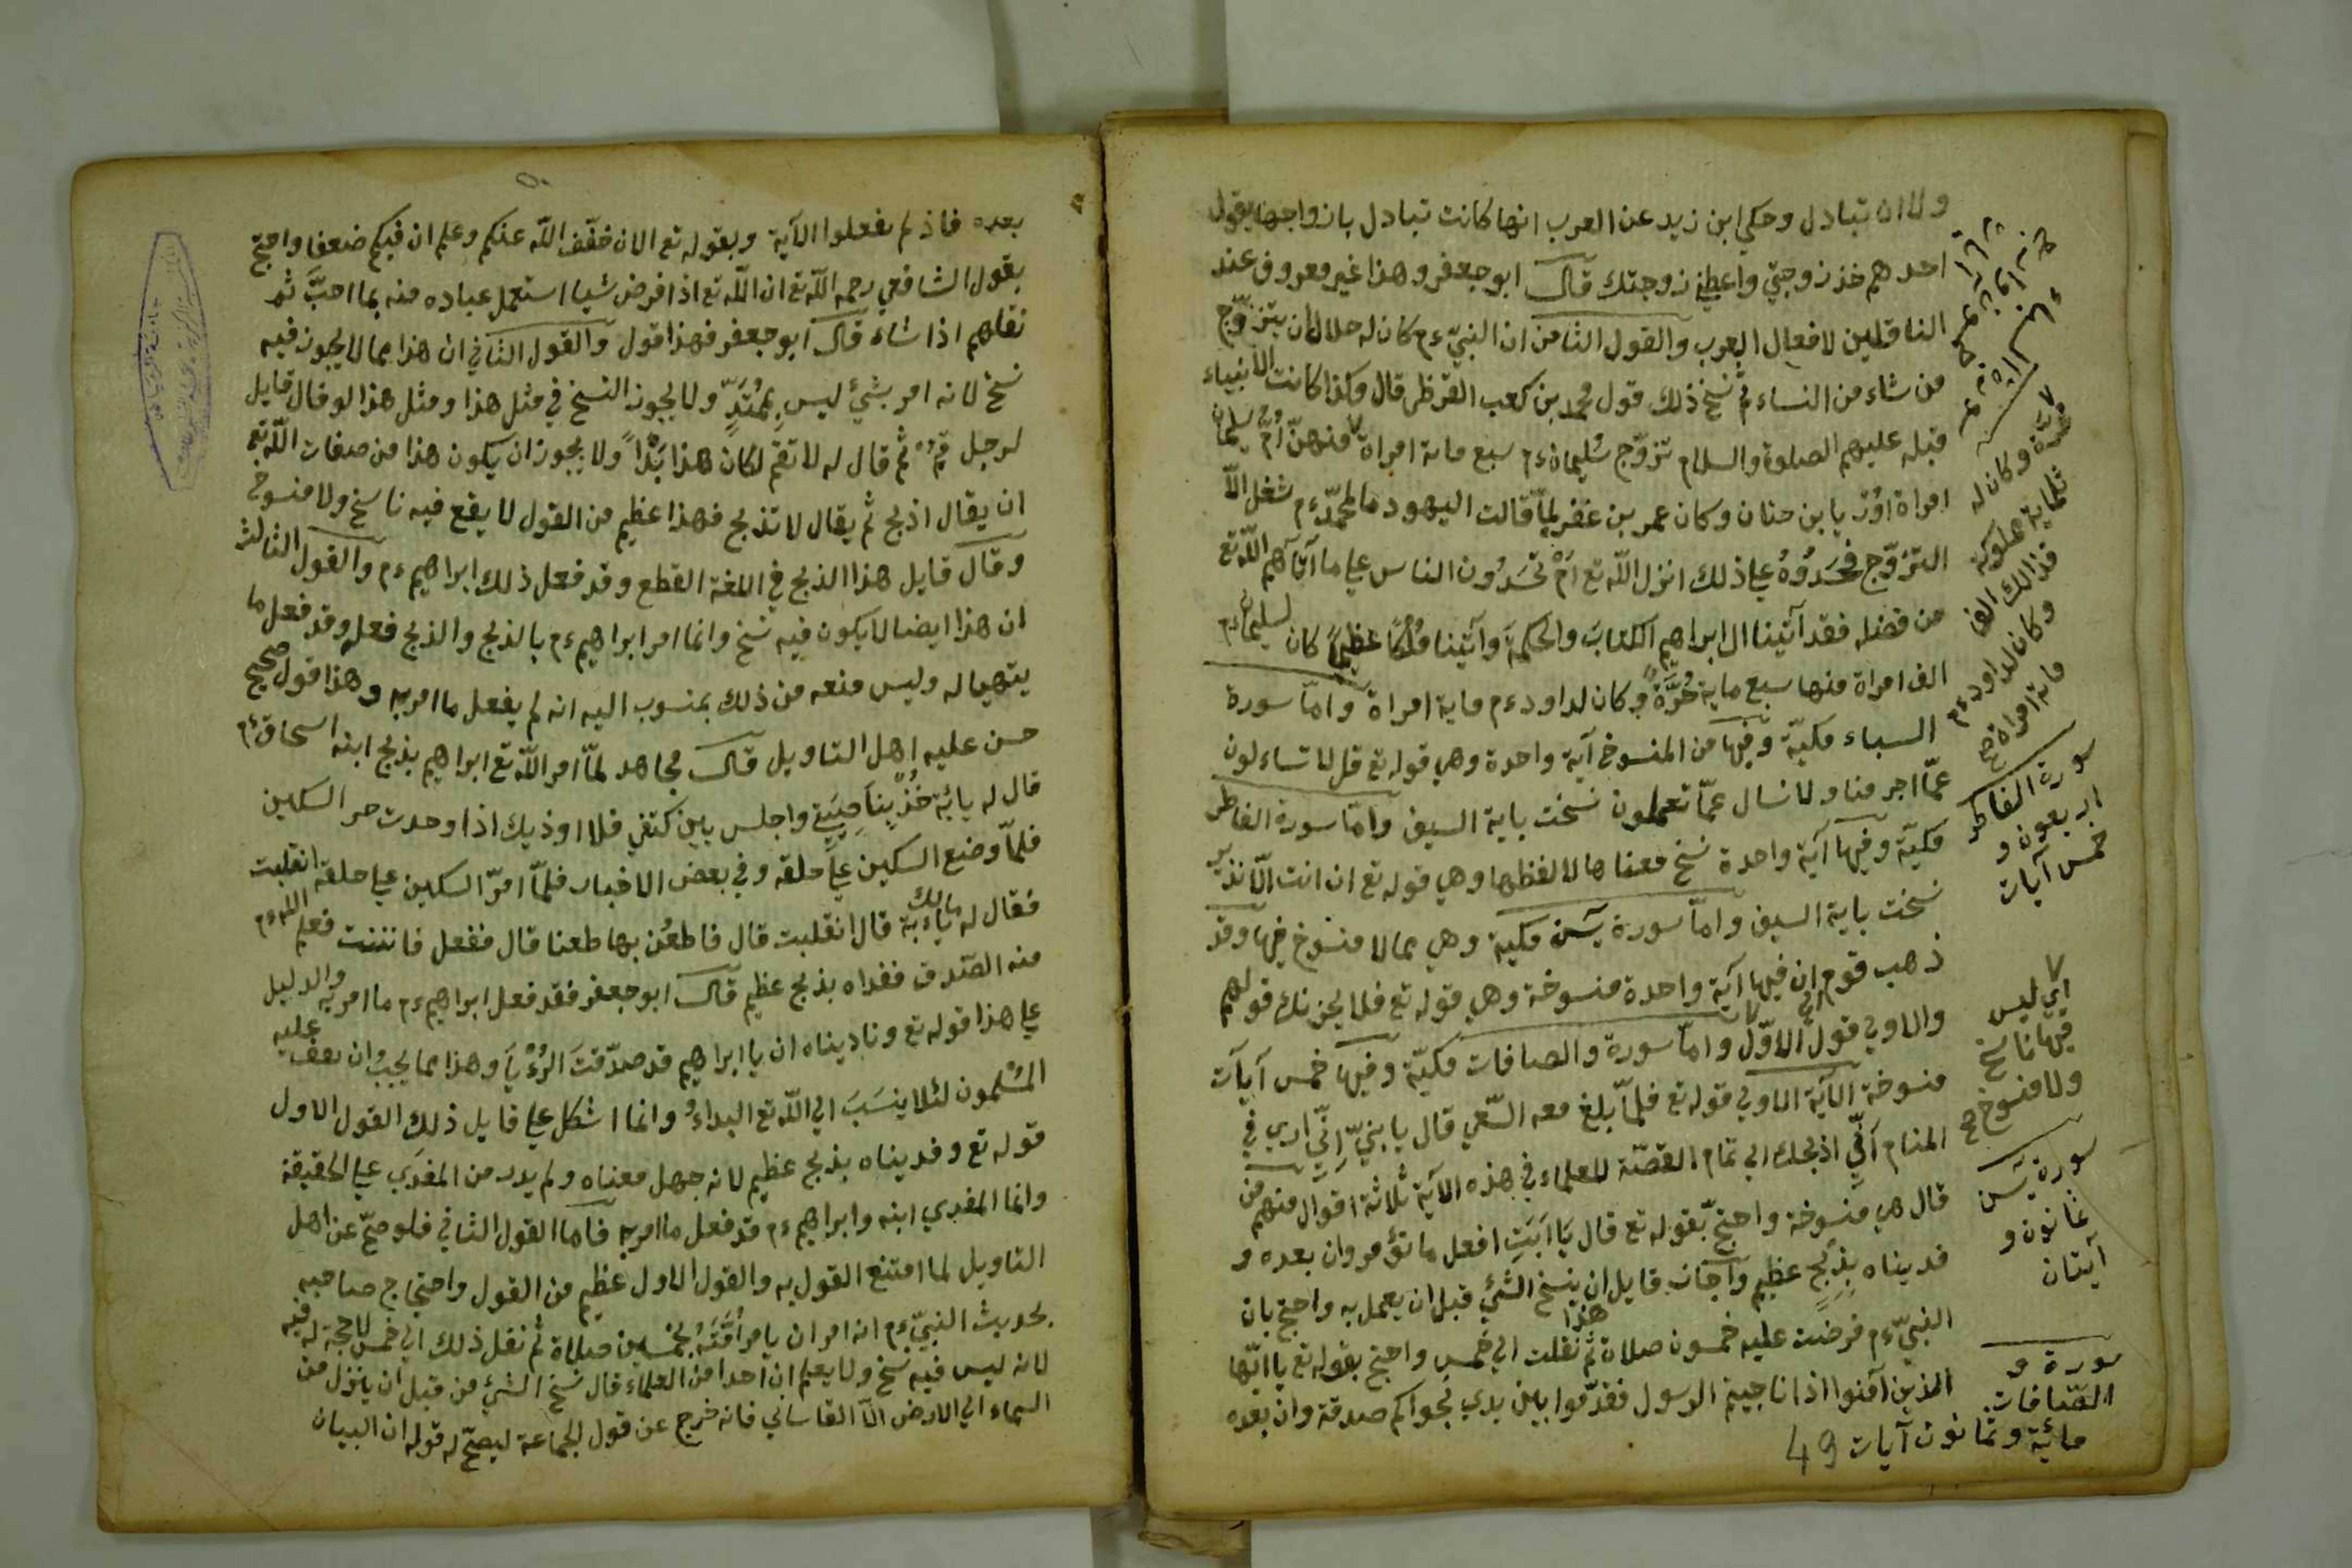 ولا ان تبادل وحكي ابن زيد عن العرب انها كانت تبادل بازواجها يقول
احدهم خذ زوجتي واعطني زوجتك قال ابو جعفر وهذا غير معروف عند
الناقلين لافعال العرب والقول الثامن ان النبيّ ءم كان له حلالا ان يتزوّج
من شاء من النساء ثم نسخ ذلك قول محمد بن كعب القرظي قال وكذا كانت الانبياء
قبله عليهم الصلوة والسلام تزوّج سُليمان ءم سبع مائة امراة منهنّ اُمّ سليمان
امراة اوُريا بن حنان وكان عمر بن عفر لمّا قالت اليهود ما لمحمّد ءم شغل الّا
التزوّج فحسَدُوهُ علي ذلك انزل اللّه تع اَمْ تحسَدُون الناس علي ما آتَاهم اللّه تع
من فضله فقد آتينا ال ابراهيم الكتابَ والحكمةَ وآتينا مُلكًا عظيمًا كان لسليمان ءم
الف امراة منها سبع ماية حُرَّةً وكان لداود ءم ماية امراة وامّا سورة
السباء مكيّة وفيها من المنسوخ آية واحدة وهي قوله تع قل لا تساءلون
عمّا اجرمنا ولا نسال عمّا تعملون نسخت باية السيف وامّا سورة الفاطر
مكيّة وفيها آية واحدة نسخ معناها لا لفظها وهي قوله تع ان انت الّا نذير
نسخت باية السيف وامّا سورة يسٓن مكية وهي مما لا منسوخ فيها وقد
ذهب قوم الي ان فيها آية واحدة منسوخة وهي قوله تع فلا يحزنك قولهم
والاولي قول الاوّل وامّا سورة والصافات مكيّة وفيها خمس آيات
منسوخة الآية الاولي قوله تع فلمّا بلغ معه السّعي قال يا بنيّ اِنّي اري في
المنام اَنّي اذبحك الي تمام القصّة للعلماء في هذه الآية ثلاثة اقوال منهم من
قال هي منسوخة واحتجّ بقوله تع قال يَا اَبَتِ افعل ما تؤمر وان بعده و
فديناه بِذِبْحٍ عظيم واجاز قايل هذا ان ينسخ الشيء قبل ان يعمل به واحتج بان
النبيّ ءم فرضت عليه خمسون صلاة ثم نقلت الي خمس واحتج بقوله تع يا ايّها
الذين آمنوا اذا ناجيتم الرسول فقدّموا بين يدي نجواكم صدقة وان بعده
حُرّة وكان له
ثلثماية مملوكة
فذالك الف
وكان لداود ءم
مائة امراة صح
سورة الفاطر
اربعون و
خمس آيات
اي ليس
فيها ناسخ
ولا منسوخ صح
سورة يسٓن
ثمانون و
آيتان
سورة و
الصّافات
مائة وثمانون آيات
49
بعده فاذ لم تفعلوا الآية وبقوله تع الان خفّف اللّه عنكم وعلم ان فيكم ضعفا واحتج
بقول الشافعي رحمه اللّه تع ان اللّه تع اذا فرض شيا استعمل عباده منه بما احبّ ثم
نقلهم اذا شاء قال ابو جعفر فهذا قول والقول الثاني ان هذا مما لا يجوز فيه
نسخ لانه امر بشيء ليس بِمُمْتَدٍّ ولا يجوز النسخ في مثل هذا ومثل هذا لو قال قايل
لرجل قُمْ ثم قال له لا تقم لكان هذا بَدًا ولا يجوز ان يكون هذا من صفات اللّه تع
ان يقال اذبح ثم يقال لا تذبح فهذا عظيم من القول لا يقع فيه ناسخ ولا منسوخ
وقال قايل هذا الذبح في اللغة القطع وقد فعل ذلك ابراهيم ءم والقول الثالث
ان هذا ايضا لا يكون فيه نسخ وانما امر ابراهيم ءم بالذبح والذبح فعله وقد فعل ما
يتهيا له وليس منعه من ذلك بمنسوب اليه انه لم يفعل ما امر به وهذا قول صحيح
حسن عليه اهل التاويل قال مجاهد لمّا امر اللّه تع ابراهيم بذبح ابنه اسحاق ءم
قال له يا ابة خُذْ بناصيتي واجلس بين كتفي فلا اوذيك اذا وجدت حر السكين
فلمّا وضع السكين علي حلقه وفي بعض الاخبار فلمّا امرّ السكين علي حلقه انقلبت
فقال له مالك يا ابة قال انقلبت قال فاطعُن بها طعنا قال ففعل فانثنت فعلم اللّه ءم
منه الصّدق ففداه بذبح عظيم قال ابو جعفر فقد فعل ابراهيم ءم ما امر به والدليل
علي هذا قوله تع وناديناه ان يا ابراهيم قد صدّقتَ الرُؤْيَا وهذا مما يجبُ ان يقف عليه
المُسْلمون لئلا ينسَبَ الي اللّه تع البداءُ وانما اشكل علي قايل ذلك القول الاول
قوله تع وفديناه بذبح عظيم لانه جهل معناه ولم يدر من المفدَي علي الحقيقة
وانما المفدي ابنه وابراهيم ءم قد فعل ما امر به فاما القول الثاني فلو صحّ عن اهل
التاويل لما امتنع القول به والقول الاول عظيم من القول واحتجاج صاحبه
بحديث النبيّ ءم انه امر ان يامر اُمَّتَهُ بخمسين صلاة ثم نقل ذلك الي خمس لا حجة له فيه
لانه ليس فيه نسخ ولا يعلم ان احدا من العلماء قال نسخ الشيء من قبل ان ينزل من
السماء الي الارض الّا القاساني فانه خرج عن قول الجماعة ليصحّ له قوله ان البيان